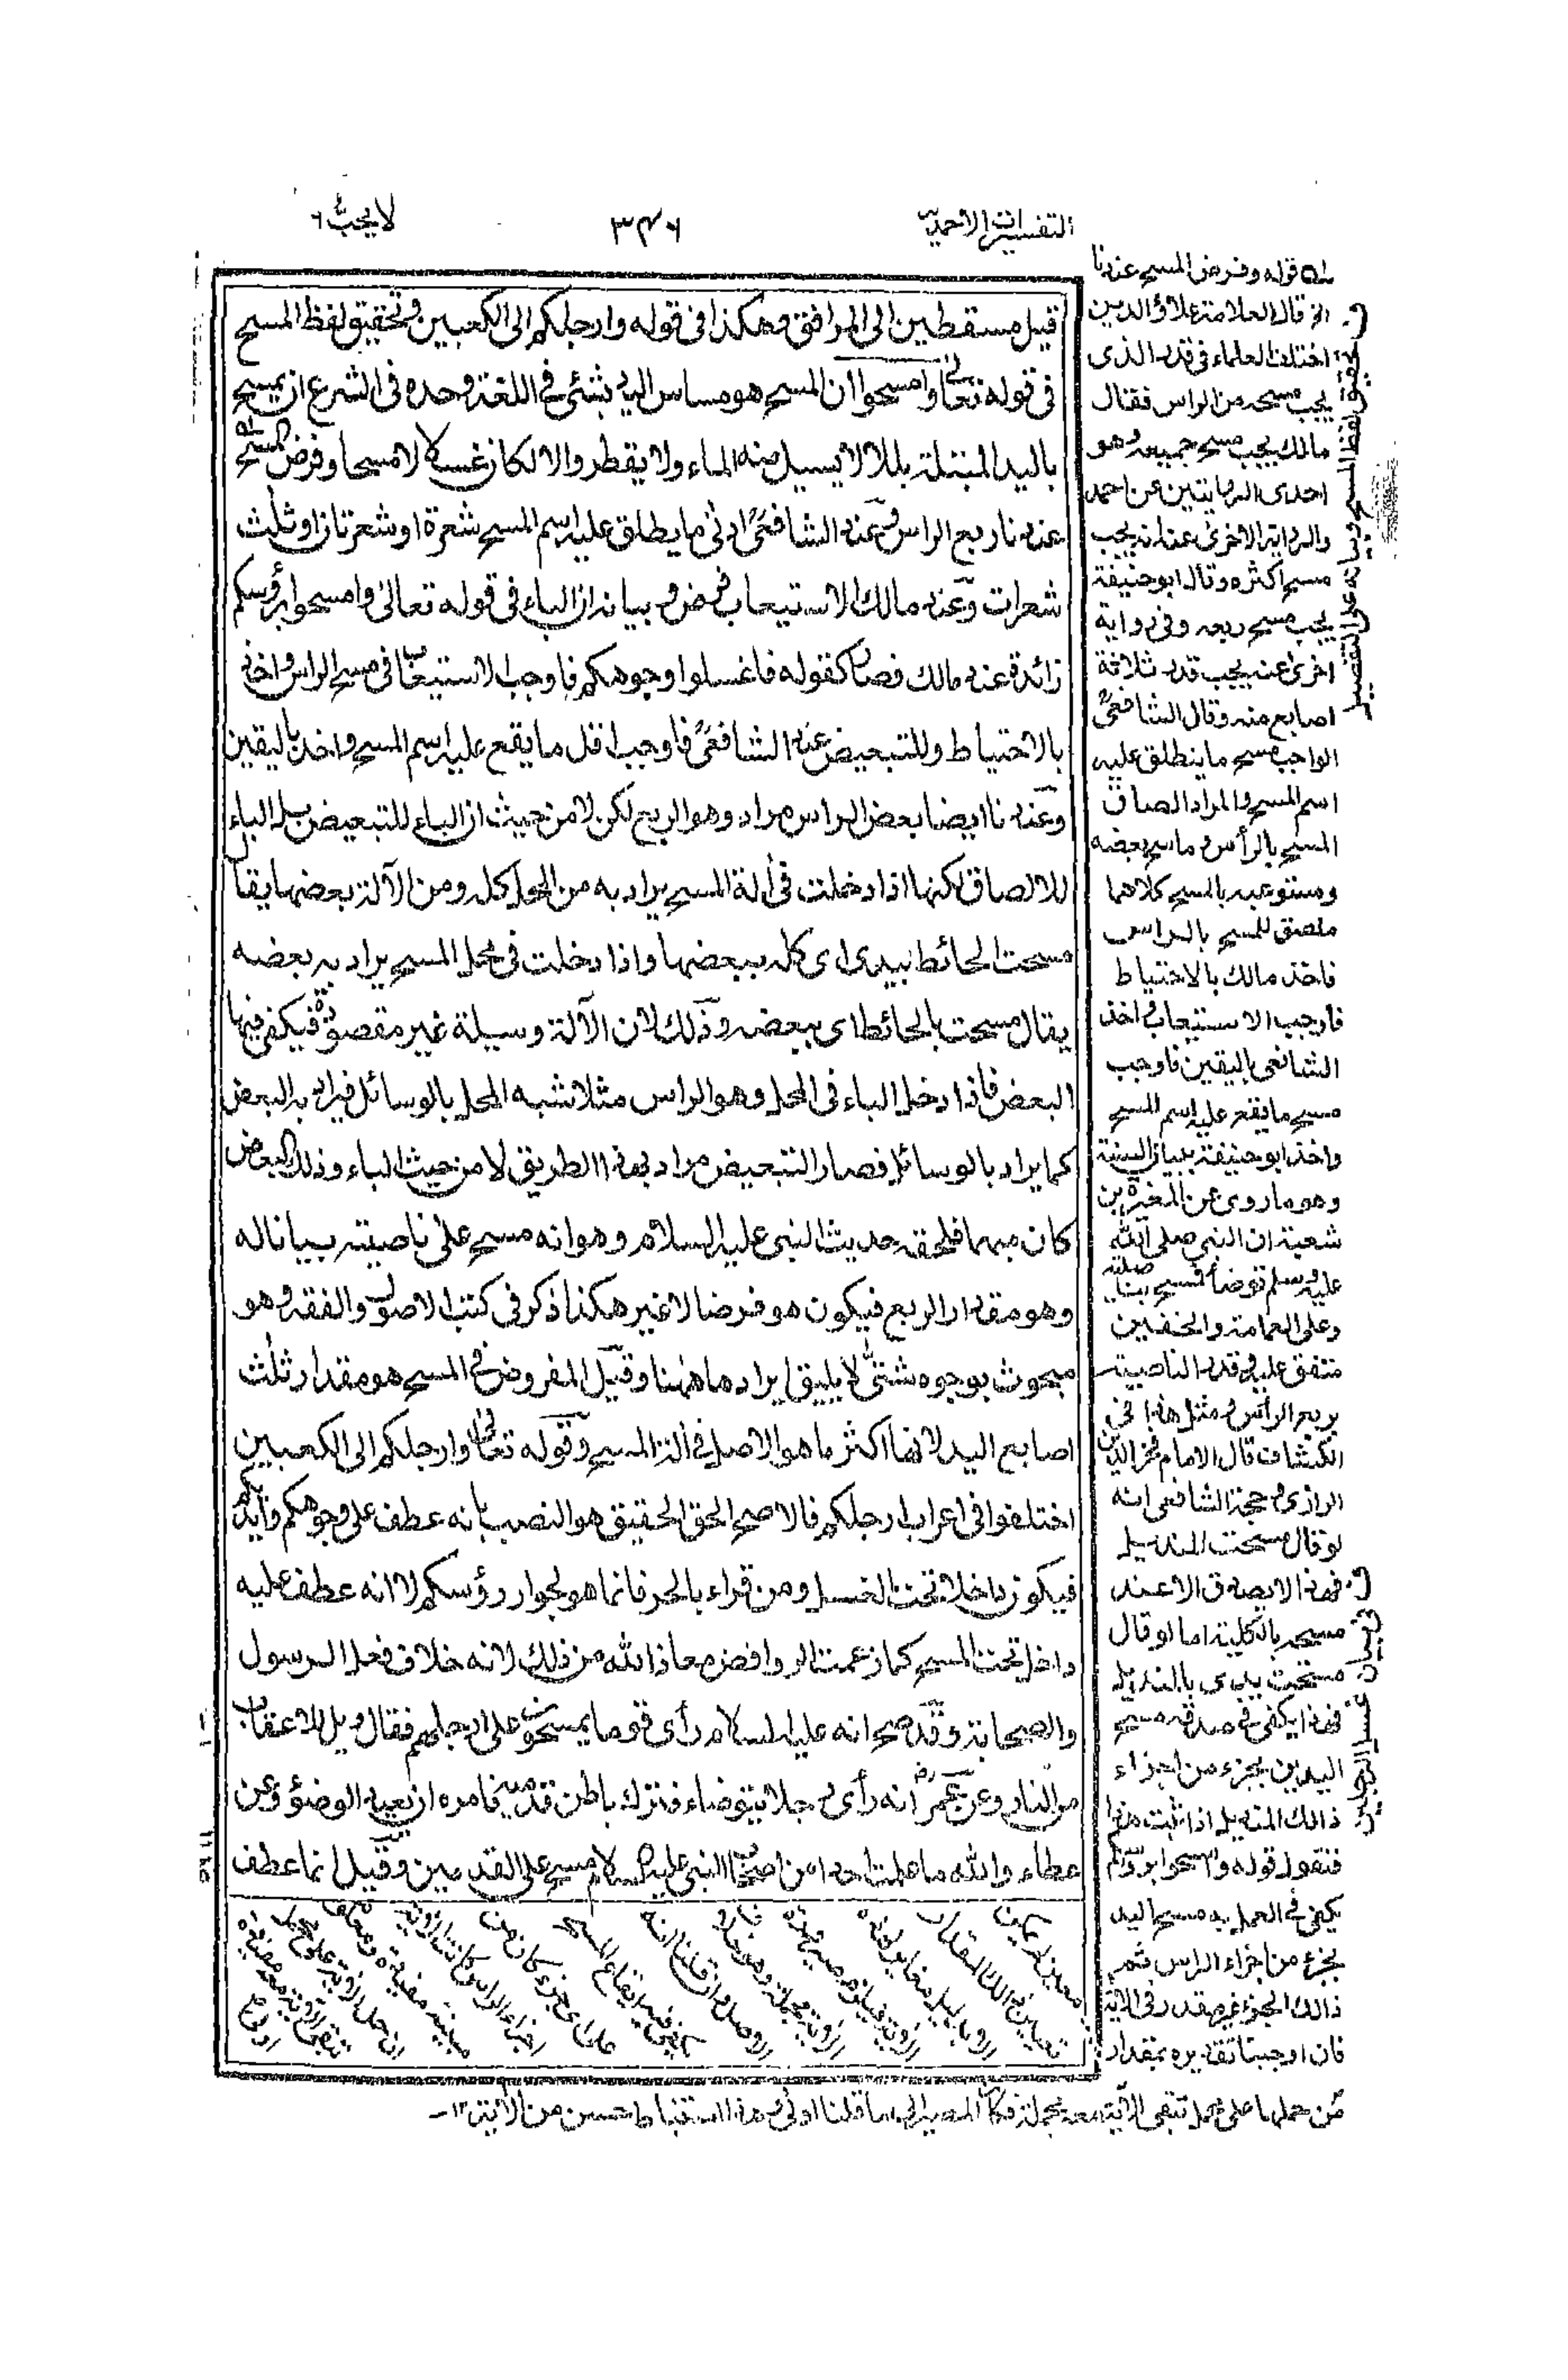 التفسيرات الاحمدية
٣٤٦
لا يحب ٦
قيل مسقطين الى المرافق وهكذا فى قوله وارجلكم الى الكعبين وتحقيق لفظ المسح
فى قوله تعالى وامسحوا ان المسح هو مساس اليد بشئ فى اللغة وحده فى الشرع ان يمسح
باليد المبتلة بللا لا يسيل منه الماء ولا يقطر والا لكان غسلا لا مسحا وفرض المسح
عندنا ربع الراس وعند الشافعى ادنى ما يطلق عليه اسم المسح شعرة او شعرتان او ثلث
شعرات وعند مالك الاستيعاب فرض وبيانه ان الباء فى قوله تعالى وامسحوا برؤسكم
زائدة عند مالك فصار كقوله فاغسلوا وجوهكم فاوجب الاستيعاب فى مسح الراس واخذ
بالاحتياط وللتبعيض عند الشافعى فاوجب اقل ما يقع عليه اسم المسح واخذ باليقين
وعندنا ايضا بعض الراس مراد وهو الربع لكن لا من حيث ان الباء للتبعيض بل الباء
للالصاق لكنها اذا دخلت فى ألة المسح يراد به من المحل كله ومن الآلة بعضها يقال
مسحت الحائط بيدى اى كله ببعضها واذا دخلت فى محل المسح يراد به بعضه
يقال مسحت بالحائط اى ببعضه وذلك لان الآلة وسيلة غير مقصودة فيكفى فيها
البعض فاذا دخل الباء فى المحل وهو الراس مثلا شبه المحل بالوسائل فيراد به البعض
كما يراد بالوسائل فصار التبعيض مراد بهذا الطريق لا من حيث الباء وذلك البعض
كان مبهما فلحقه حديث النبى عليه السلام وهو انه مسح على ناصيته بيانا له
وهو مقدار الربع فيكون هو فرضا لا غير هكذا ذكر فى كتب الاصول والفقه وهو
مبحوث بوجوه شتى لا يليق ايرادها ههنا وقيل المفروض فى المسح هو مقدار ثلث
اصابع اليد لانها اكثر ما هو الاصل فى ألة المسح وقوله تعالى وارجلكم الى الكعبين
اختلفوا فى اعراب ارجلكم فالاصح الحق الحقيق هو النصب بانه عطف على وجوهكم وأيديكم
فيكون داخلا تحت الغسل ومن قراء بالجر فانما هو لجوار رؤسكم لا انه عطف عليه
داخل تحت المسح كما زعمت الروافض معاذ الله من ذلك لانه خلاف فعل الرسول
والصحابة وقد صح انه عليه السلام رأى قوما يمسحون على ارجلهم فقال ويل للاعقاب
من النار وعن عمر رض انه رأى رجلا يتوضاء فترك باطن قدميه فامره ان يعيد الوضؤ وعن
عطاء والله ما علمت احدا من اصحاب النبى عليه السلام مسح على القدمين وقيل انما عطف
قوله وفرض المسح عندنا
الخ قال العلامة علاؤ الدين
اختلف العلماء فى قدر الذى
يجب مسحه من الراس فقال
مالك يجب مسح جميعه وهو
احدى الروايتين عن احمد
والرواية الاخرى عنه انه يجب
مسح اكثره وقال ابو حنيفة
يجب مسح ربعه وفى رواية
اخرى عنه يجب قدر ثلاثة
اصابع منه وقال الشافعى
الواجب مسح ما ينطلق عليه
اسم المسح والمراد الصاق
المسح بالرأس وماسح بعضه
ومستوعبه بالمسح كلاهما
ملصق للمسح بالراس
فاخذ مالك بالاحتياط
فاوجب الاستيعاب واخذ
الشافعى باليقين فاوجب
مسح ما يقع عليه اسم المسح
واخذ ابو حنيفة ببيان السنة
وهو ما روى عن المغيرة بن
شعبة ان النبى صلى الله
عليه وسلم توضأ فمسح بناصيته
وعلى العمامة والخفين
متفق عليه وقدر الناصية
بربع الرأس ومثل هذا فى
الكشاف قال الامام فخر الدين
الرازى حجة الشافعى انه
لو قال مسحت المنديل
فهذا لا يصدق الا عند
مسحه بالكلية اما لو قال
مسحت يدى بالمنديل
فهذا يكفى فى صدقه مسح
اليدين بجزء من اجزاء
ذالك المنديل اذا ثبت هذا
فنقول قوله وامسحوا برؤسكم
يكفى فى العمل به مسح اليد
بجزء من اجزاء الراس ثم
ذالك الجزء غير مقدر فى الآية
فان اوجبنا تقديره بمقدار
من حملها على محمل تبقى الآية معه مجملة فكان المصير الى ما قلنا اولى وهذا استنباط حسن من الآية ١٢
ف تحقيق لفظ المسح وبيانه على التفصيل
ف فى بيان غسل الرجلين